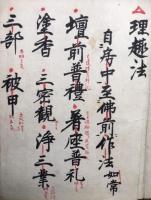 理趣法
自房中至佛前作法如常
壇前普禮 著座普礼
塗香 三密観 浄三業
三部 被甲